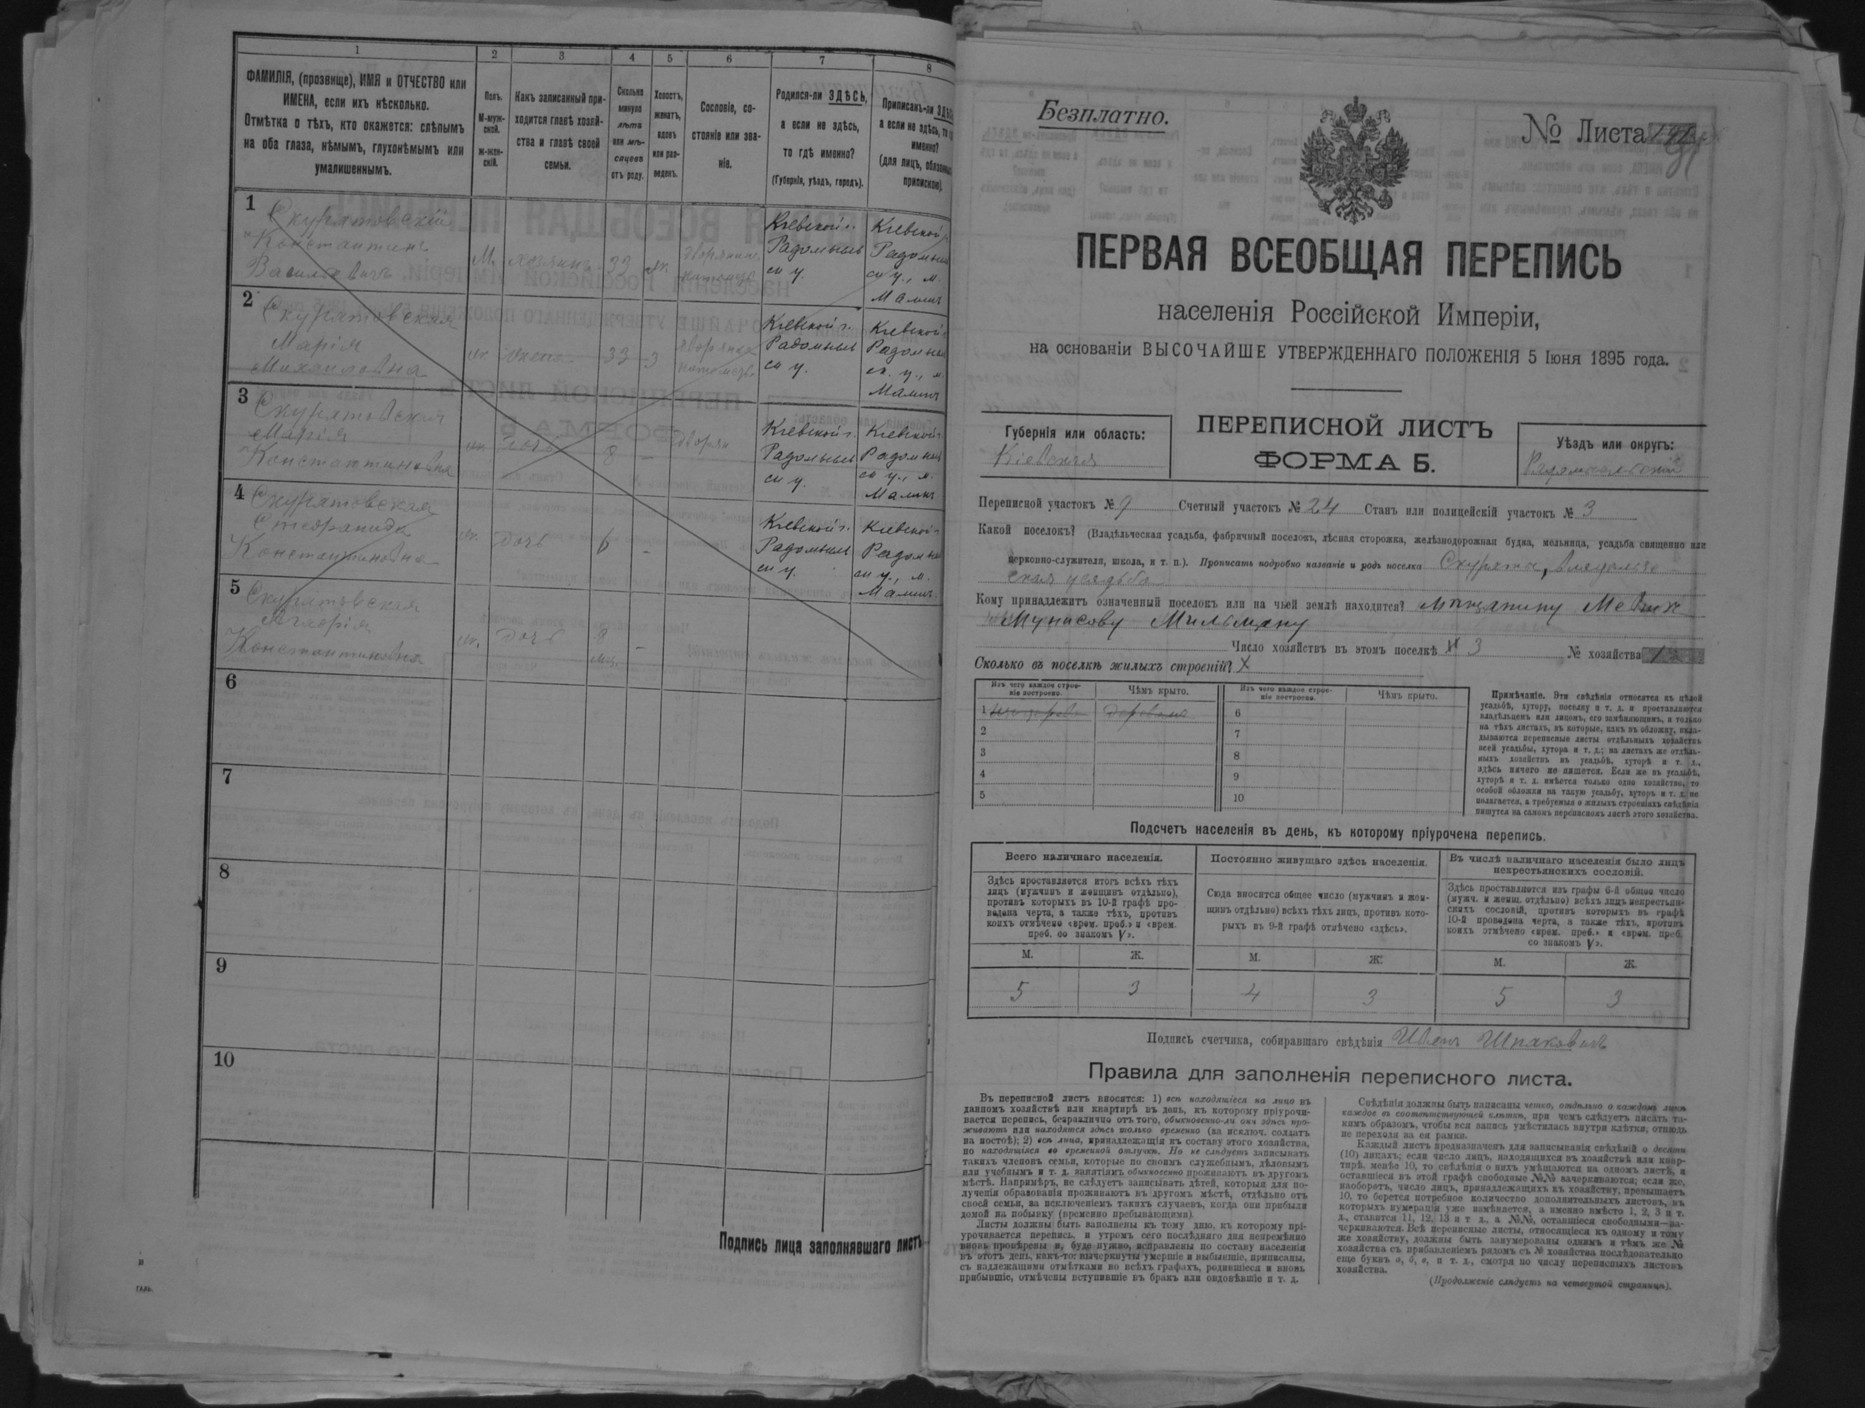 1
2
3
4
5
6
7
8
ФАМИЛІЯ, (прозвище), ИМЯ и ОТЧЕСТВО или
ИМЕНА, если ихъ нѣсколько.
Отмѣтка о тѣхъ, кто окажется: слѣпымъ
на оба глаза, нѣмымъ, глухонѣмымъ или
умалишеннымъ.
Полъ.
М-муж-
ской.
ж-жен-
скій.
Какъ записанный при-
ходится главѣ хозяй-
ства и главѣ своей
семьи.
Сколько
минуло
лѣтъ
или мѣ-
сяцевъ
отъ роду.
Холостъ,
женатъ,
вдовъ
или раз-
веденъ.
Сословіе, со-
стояніе или зва-
ніе.
Родился-ли ЗДѢСЬ,
а если не здѣсь,
то гдѣ именно?
(Губернія, уѣздъ, городъ).
Приписанъ-ли
а если не здѣсь, то
именно?
(для лицъ,
1
Скуратовскій
Константинъ
Васильевичъ
М.
хозяинъ
Кіевской г.
Радомысль
ск у.
Кіевской
Радомысл
ск у., м.
Малинъ
2
Скуратовская
Марія
Михаиловна
ж.
жена
33
3
дворянка
Кіевской г.
Радомысль
ск у.
Кіевской
Радомысл
ск. у., м.
Малинъ
3
Скуратовская
Марія
Константиновна
ж.
дочь
8
–
дворян
Кіевской г.
Радомысль
ск у.
Кіевской
Радомысл
ск у., м.
Малинъ
4
Скуратовская
Стефанида
Константиновна
ж.
дочь
6
–
Кіевской г.
Радомысль
ск у.
Кіевской
Радомысл
ск у., м.
Малинъ
5
Скуратовская
Константиновна
ж.
дочь
8
мѣс.
–
6
7
8
9
10
Подпись лица заполнявшаго листъ
Безплатно.
№ Листа
91
ПЕРВАЯ ВСЕОБЩАЯ ПЕРЕПИСЬ
населенія Россійской Имперіи,
на основаніи ВЫСОЧАЙШЕ УТВЕРЖДЕННАГО ПОЛОЖЕНІЯ 5 Іюня 1895 года.
Губернія или область:
Кіевская
ПЕРЕПИСНОЙ ЛИСТЪ
ФОРМА Б.
Уѣздъ или округъ:
Радомысльскій
Переписной участокъ № 9 Счетный участокъ № 24 Станъ или полицейскій участокъ № 3
Какой поселокъ? (Владѣльческая усадьба, фабричный поселокъ, лѣсная сторожка, желѣзнодорожная будка, мельница, усадьба священно или
церковно-служителя, школа, и т. п.). Прописать подробно названіе и родъ поселка Скураты, владѣльче-
ская усадьба
Кому принадлежитъ означенный поселокъ или на чьей землѣ находится? мѣщанину
Мильману
Число хозяйствъ въ этомъ поселкѣ 3 № хозяйства 1
Сколько въ поселкѣ жилыхъ строеній? X
Изъ чего каждое строе-
ніе построено.
Чѣмъ крыто.
Изъ чего каждое строе-
ніе построено.
Чѣмъ крыто.
1
2
3
4
5
6
7
8
9
10
Примѣчаніе. Эти свѣдѣнія относятся къ цѣлой
усадьбѣ, хутору, поселку и т. д. и проставляются
владѣльцемъ или лицомъ, его замѣняющимъ, и только
на тѣхъ листахъ, въ которые, какъ въ обложку, вкла-
дываются переписные листы отдѣльныхъ хозяйствъ
всей усадьбы, хутора и т. д.; на листахъ же отдѣль-
ныхъ хозяйствъ въ усадьбѣ, хуторѣ и т. д.,
здѣсь ничего не пишется. Если же въ усадьбѣ,
хуторѣ и т. д. имѣется только одно хозяйство, то
особой обложки на такую усадьбу, хуторъ и т. д. не
полагается, а требуемыя о жилыхъ строеніяхъ свѣдѣнія
пишутся на самомъ переписномъ листѣ этого хозяйства.
Подсчетъ населенія въ день, къ которому пріурочена перепись.
Всего наличнаго населенія.
Здѣсь проставляется итогъ всѣхъ тѣхъ
лицъ (мужчинъ и женщинъ отдѣльно),
противъ которыхъ въ 10-й графѣ про-
ведена черта, а также тѣхъ, противъ
коихъ отмѣчено «врем. преб.» и «врем.
преб. со знакомъ V».
Постоянно живущаго здѣсь населенія.
Сюда вносится общее число (мужчинъ и жен-
щинъ отдѣльно) всѣхъ тѣхъ лицъ, противъ кото-
рыхъ въ 9-й графѣ отмѣчено «здѣсь».
Въ числѣ наличнаго населенія было лицъ
некрестьянскихъ сословій.
Здѣсь проставляется изъ графы 6-й общее число
(мужч. и женщ. отдѣльно) всѣхъ лицъ некрестьян-
скихъ сословій, противъ которыхъ въ графѣ
10-й проведена черта, а также тѣхъ, противъ
коихъ отмѣчено «врем. преб.» и «врем. преб.
со знакомъ V».
М. Ж. М. Ж. М. Ж.
5 3 4 3 5 3
Подпись счетчика, собиравшаго свѣдѣнія
Правила для заполненія переписного листа.
Въ переписной листъ вносятся: 1) всѣ находящіеся на лицо въ
данномъ хозяйствѣ или квартирѣ въ день, къ которому пріурочи-
вается перепись, безразлично отъ того, обыкновенно-ли они здѣсь про-
живаютъ или находятся здѣсь только временно (за исключ. солдатъ
на постоѣ); 2) всѣ лица, принадлежащія къ составу этого хозяйства,
но находящіяся во временной отлучкѣ. Но не слѣдуетъ записывать
такихъ членовъ семьи, которые по своимъ служебнымъ, дѣловымъ
или учебнымъ и т. д. занятіямъ обыкновенно проживаютъ въ другомъ
мѣстѣ. Напримѣръ, не слѣдуетъ записывать дѣтей, которыя для по-
лученія образованія проживаютъ въ другомъ мѣстѣ, отдѣльно отъ
своей семьи, за исключеніемъ такихъ случаевъ, когда они прибыли
домой на побывку (временно пребывающими).
Листы должны быть заполнены къ тому дню, къ которому прі-
урочивается перепись, и утромъ сего послѣдняго дня непремѣнно
вновь провѣрены и, буде нужно, исправлены по составу населенія
въ этотъ день, какъ-то: вычеркнуты умершіе и выбывшіе, приписаны,
съ надлежащими отмѣтками во всѣхъ графахъ, родившіеся и вновь
прибывшіе, отмѣчены вступившіе въ бракъ или овдовѣвшіе и т. д.
Свѣдѣнія должны быть написаны четко, отдѣльно о каждомъ лицѣ
каждое въ соотвѣтствующей клѣткѣ, при чемъ слѣдуетъ писать та-
кимъ образомъ, чтобы вся запись умѣстилась внутри клѣтки, отнюдь
не переходя за ея рамки.
Каждый листъ предназначенъ для записыванія свѣдѣній о десяти
(10) лицахъ; если число лицъ, находящихся въ хозяйствѣ или квар-
тирѣ, менѣе 10, то свѣдѣнія о нихъ умѣщаются на одномъ листѣ, а
оставшіеся въ этой графѣ свободные №№ зачеркиваются; если же,
наоборотъ, число лицъ, принадлежащихъ къ хозяйству, превышаетъ
10, то берется потребное количество дополнительныхъ листовъ, въ
которыхъ нумерація уже измѣняется, а именно вмѣсто 1, 2, 3 и т.
д., ставится 11, 12, 13 и т д., а №№, оставшіеся свободными—за-
черкиваются. Всѣ переписные листы, относящіеся къ одному и тому
же хозяйству, должны быть занумерованы однимъ и тѣмъ же №
хозяйства съ прибавленіемъ рядомъ съ № хозяйства послѣдовательно
еще буквъ а, б, в, и т. д., смотря по числу переписныхъ листовъ
хозяйства.
(Продолженіе слѣдуетъ на четвертой страницѣ).